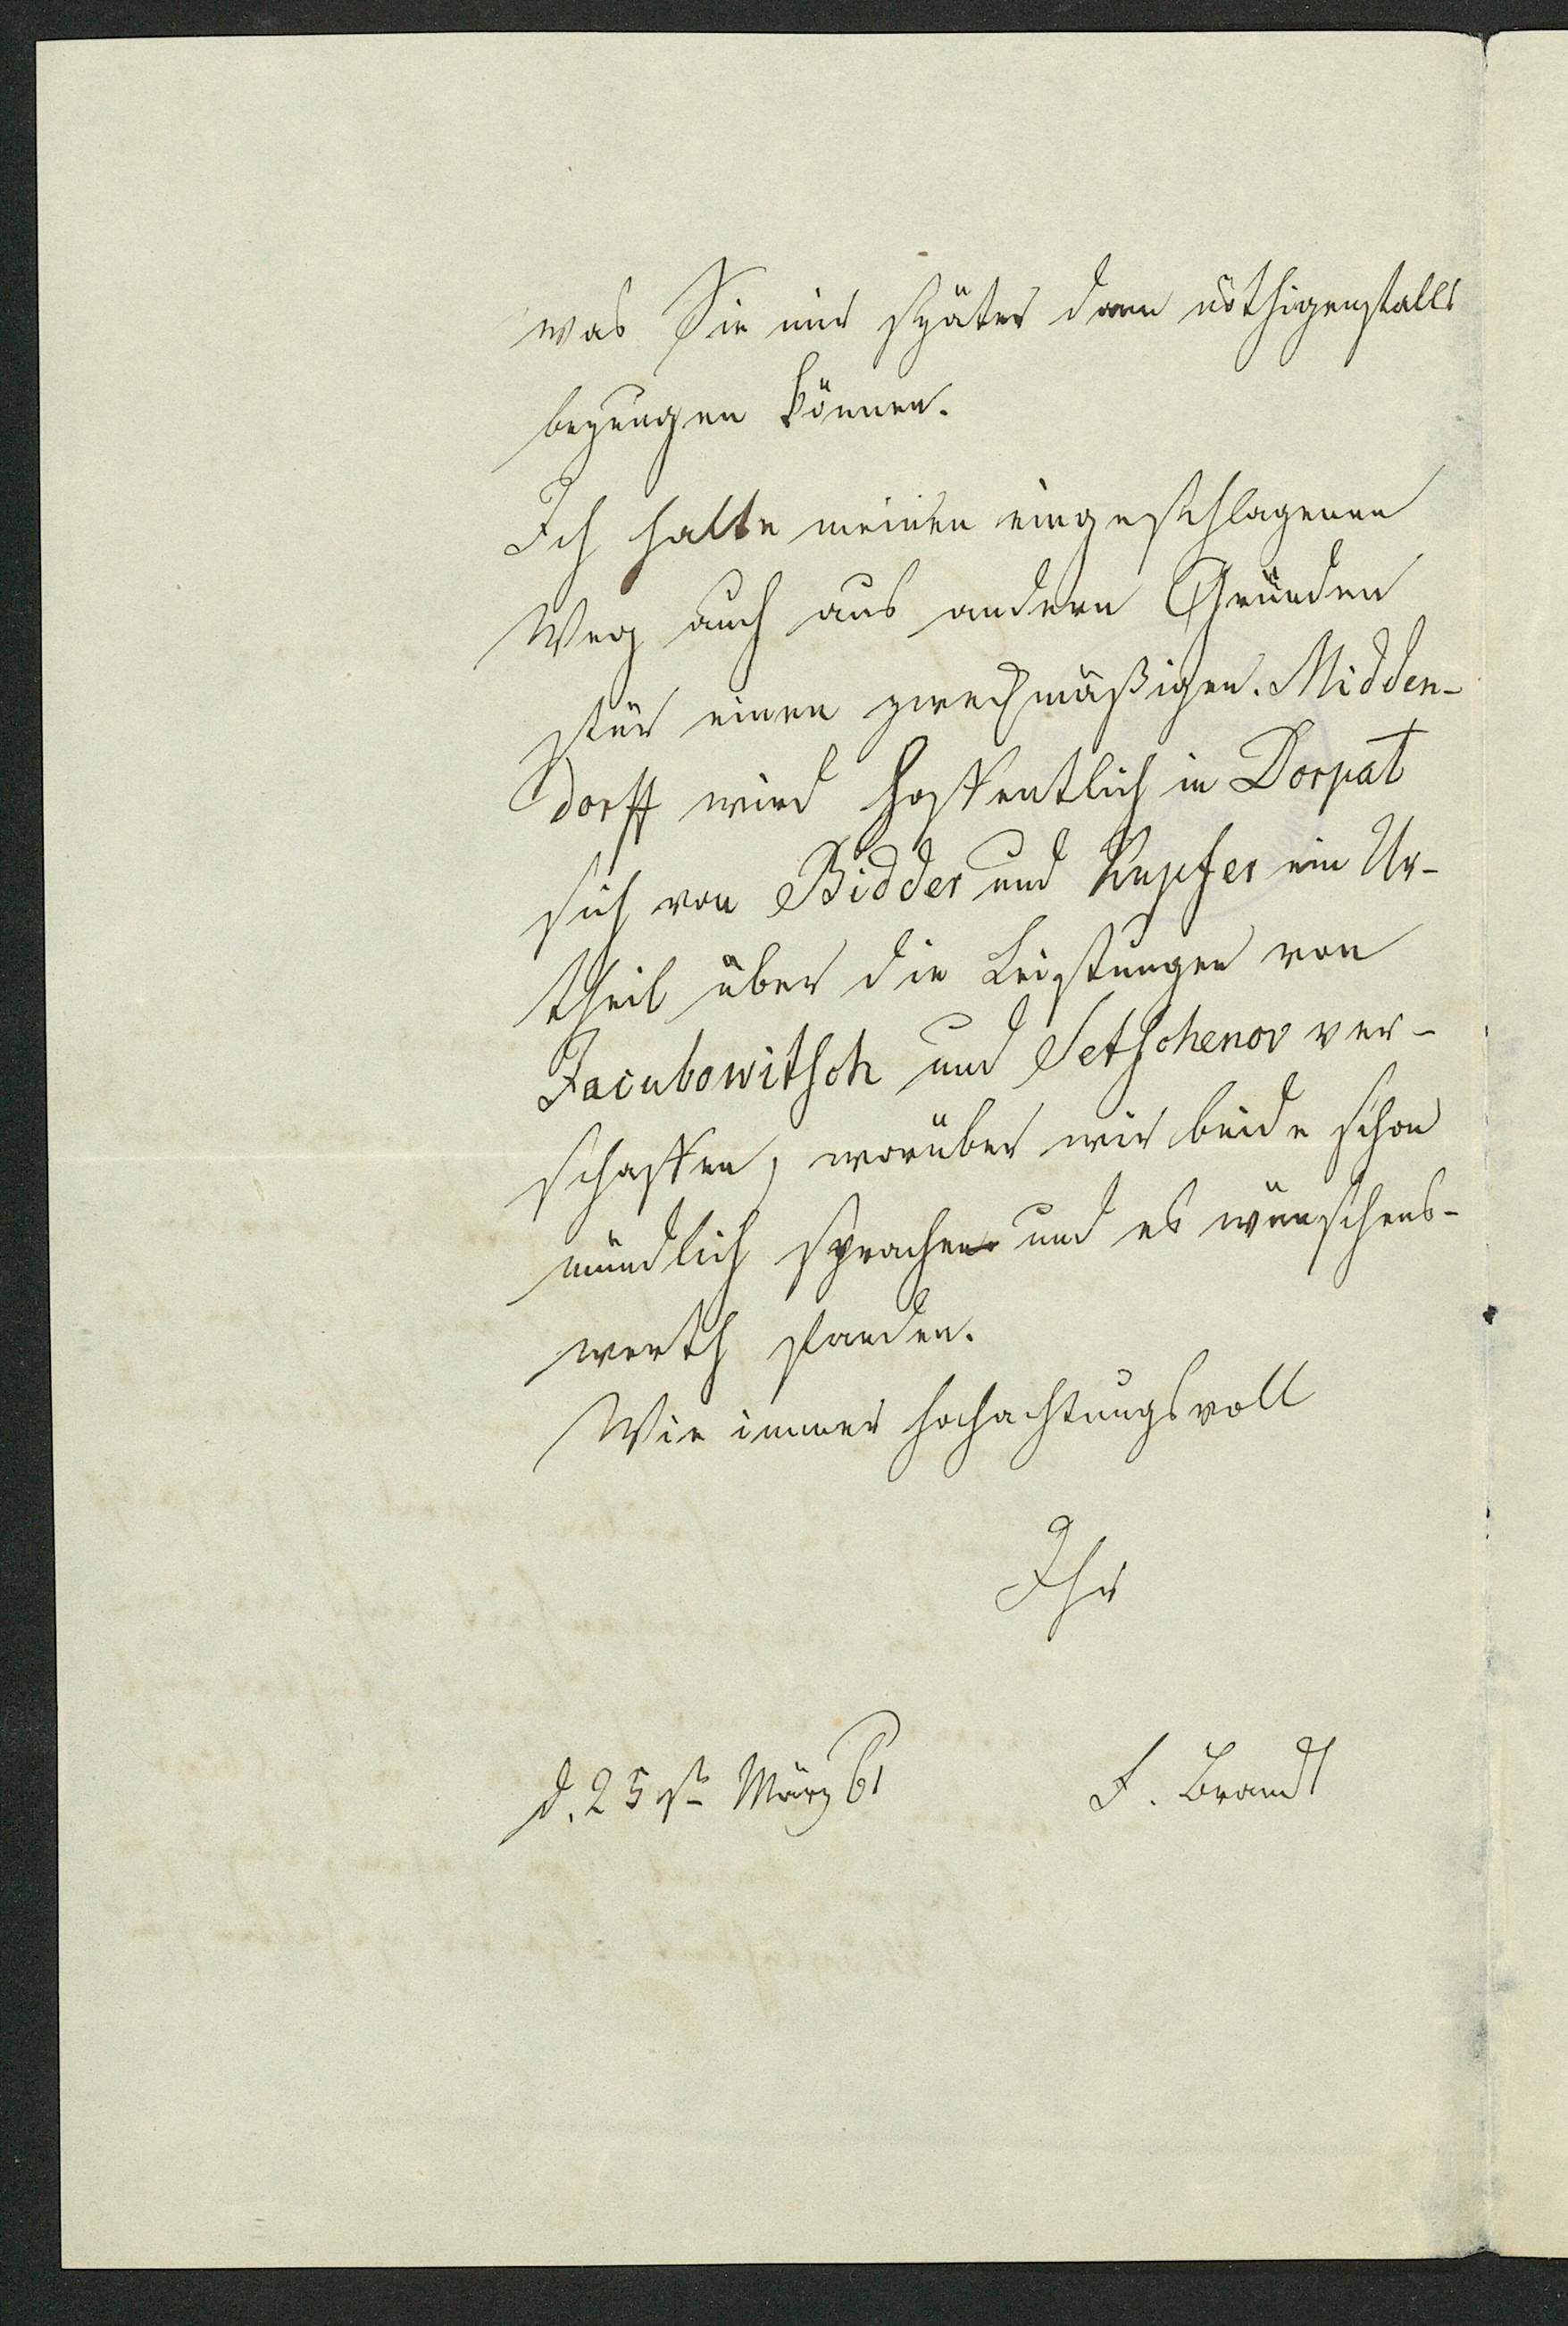 was Sie mir später dann nöthigenfalls
bezeugen können.
Ich halte meinen eingeschlagenen
Weg auch aus andern Gründen
für einen zweckmäßigen. Midden-
dorff wird hoffentlich in Dorpat
sich von Bidder und Kupfer ein Ur-
theil über die Leistungen von
Jacubowitsch und Setschenov ver-
schaffen, worüber wir beide schon
mündlich sprachen und es wünschens-
werth fanden.
Wie immer hochachtungsvoll
Ihr
d. 25sten März 61 F. Brandt